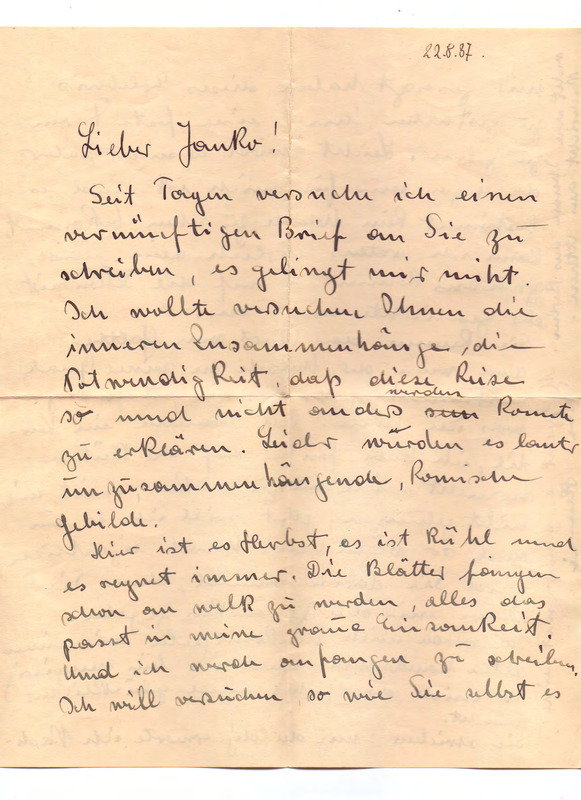 22.8.37.
Lieber Janko!
Seit Tagen versuche ich einen
vernünftigen Brief an Sie zu
schreiben, es gelingt mir nicht.
Ich wollte versuchen Ihnen die
inneren Zusammenhänge, die
Notwendigkeit, daß diese Reise
werden
so und nicht anders sein konnte
zu erklären. Leider würden es lauter
unzusammenhängende, komische
Gebilde.
Hier ist es Herbst, es ist kühl und
es regnet immer. Die Blätter fangen
schon an welk zu werden, alles das
passt in meine graue Einsamkeit.
Und ich werde anfangen zu schreiben.
Ich will versuchen, so wie Sie selbst es